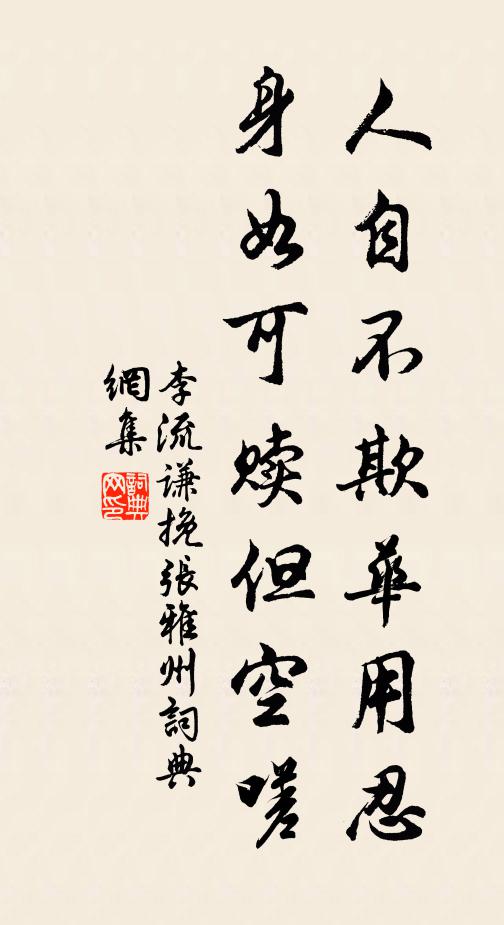 人自不欺華用忍
身如可赎但空嗟
李流谦挽張雅州詞典
網集
詞典網印